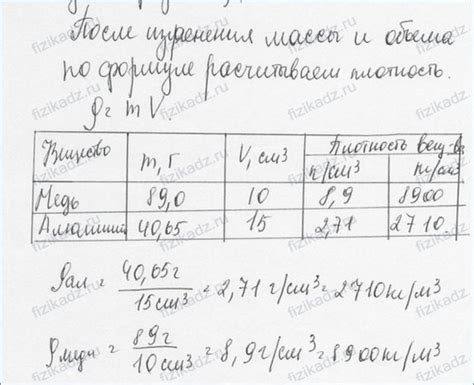 После измренения массы и объема
по формуле расчитываем плотность.
ρ= m V.
Вещество m, г V, см³ Плотность вещ-ва
г/см³ кг/см³
Медь 89,0 10 8,9 8900
Алюминий 40,65 15 2,71 2710.
ρал = 40,65г / 15см³ = 2,71 г/см³ = 2710кг/м³
ρмеди = 89г / 10см³ = 8,9г/см³ = 8900кг/м³
fizikadz.ru